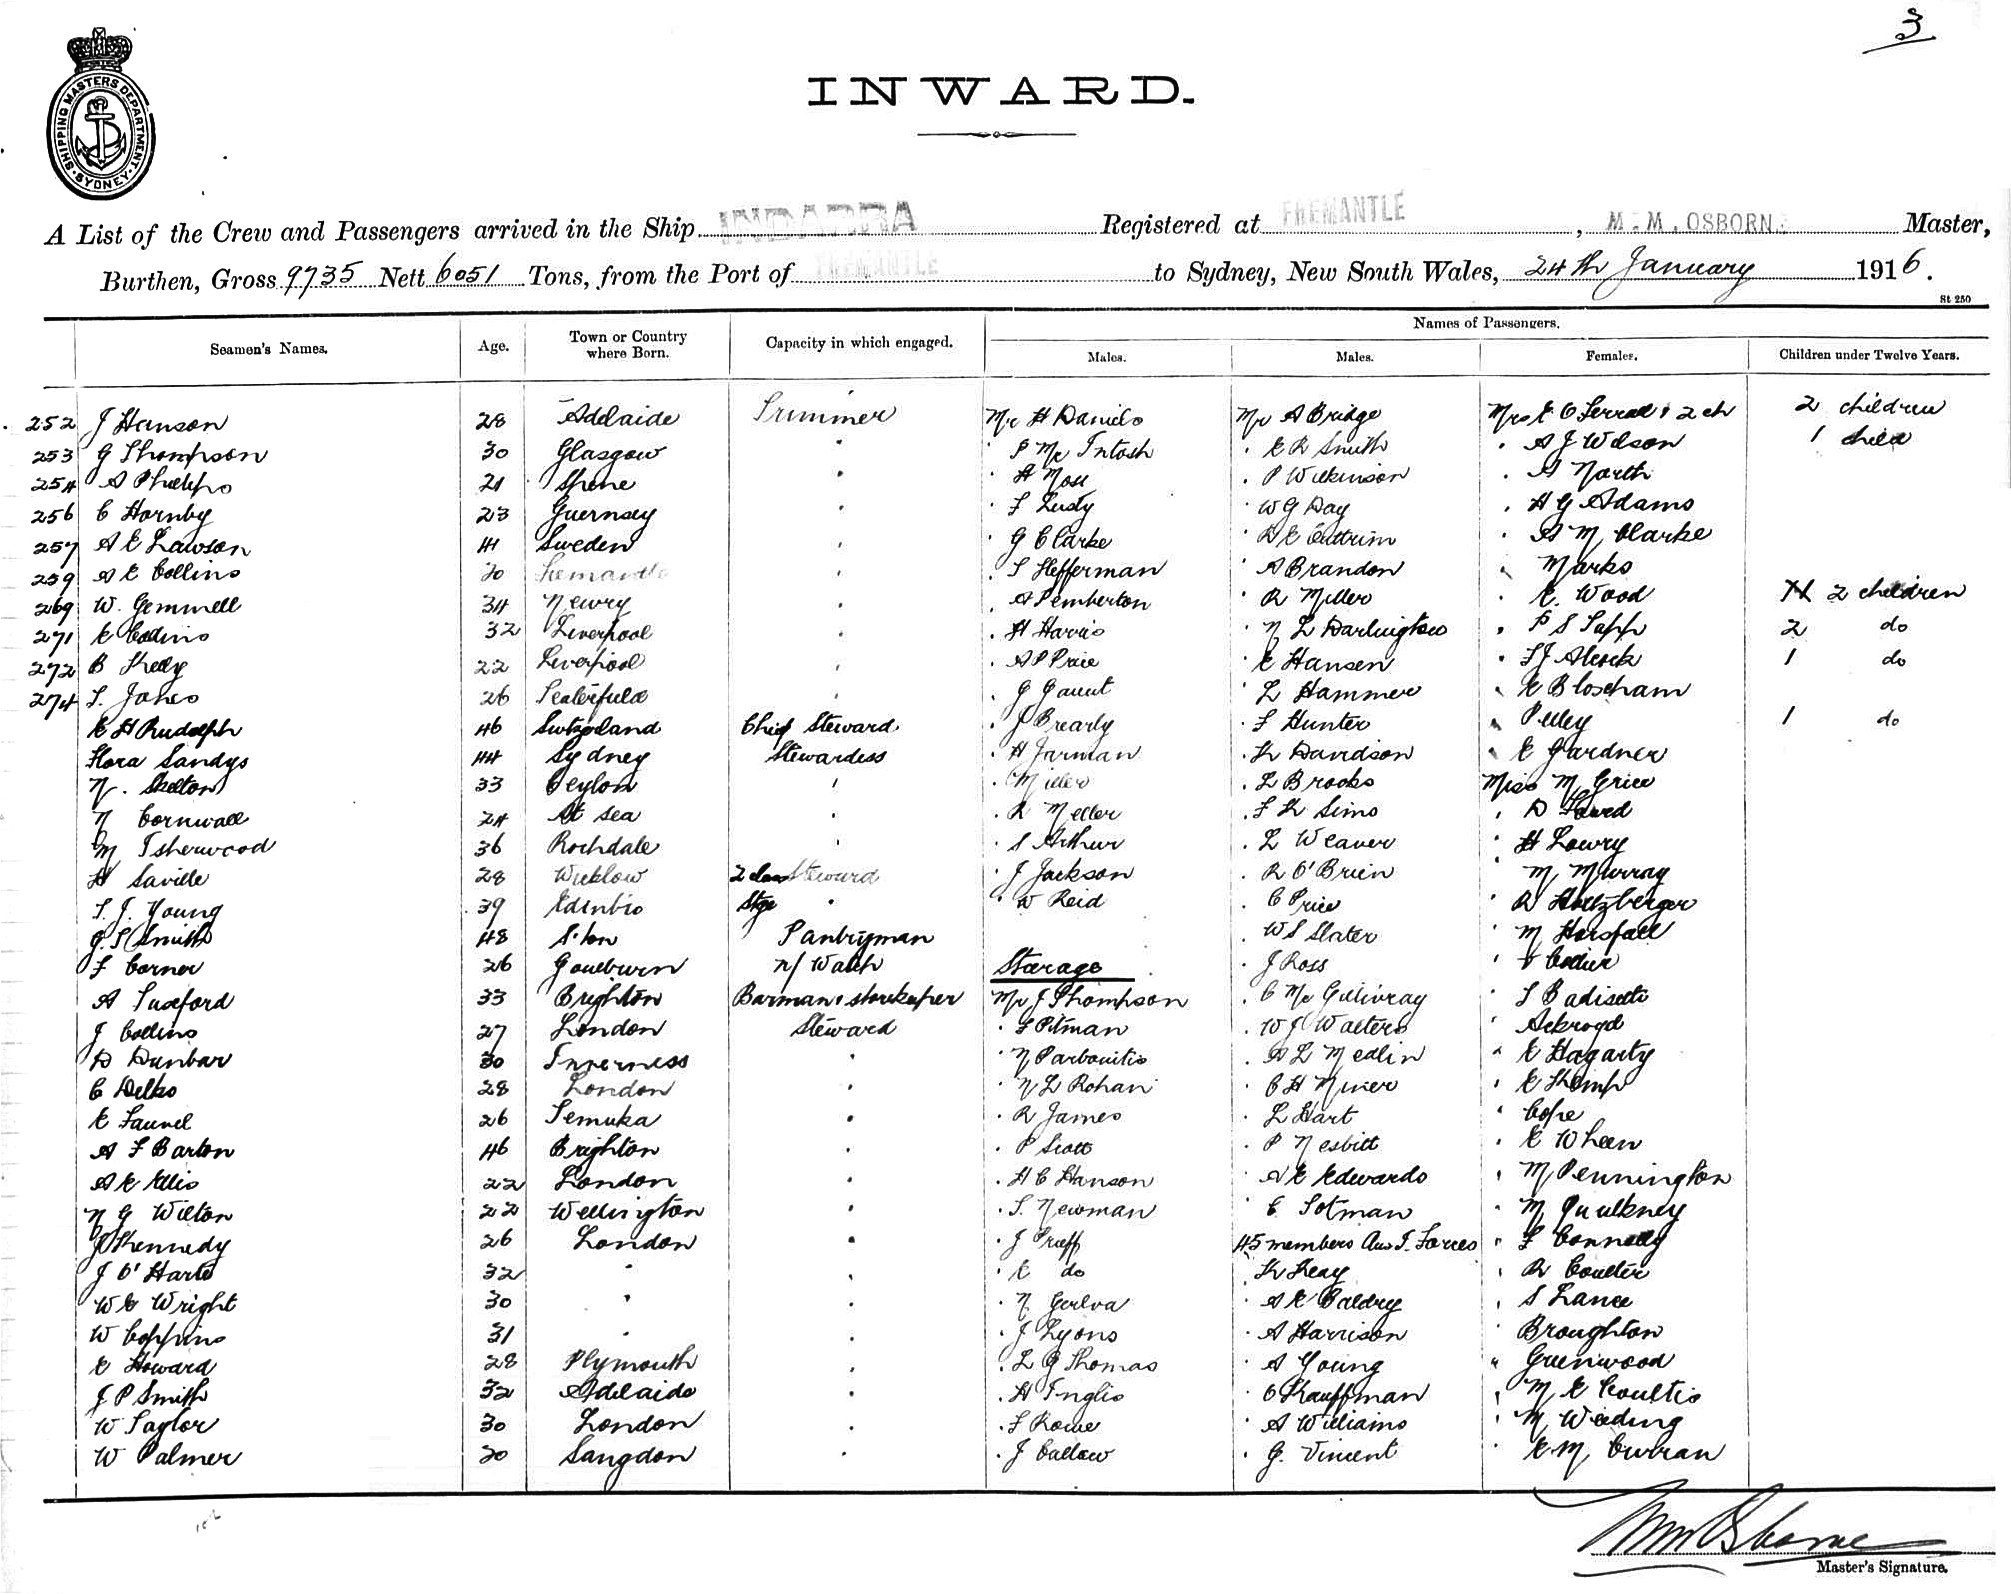 3
INWARD.
SHIPPING MASTERS DEPARTMENT
SYDNEY
A List of the Crew and Passengers arrived in the Ship INDARRA Registered at FREMANTLE, M. M. OSBORNE Master,
Burthen, Gross 9735 Nett 6051 Tons, from the Port of FREMANTLE to Sydney, New South Wales, 24th January 1916.
St 250
Seamen's Names. Age. Town or Country where Born. Capacity in which engaged. Names of Passengers.
Males. Males. Females. Children under Twelve Years.
252 J Hanson 28 Adelaide Trimmer Mr H Daniels Mr A Bridge Mrs E C & 2 ch 2 children
253 G Thompson 30 Glasgow " " P Mc Intosh " E R Smith " A J Wilson 1 child
254 A Phillips 21 " " H Moss " P Wilkinson " A North
256 C Hornby 23 Guernsey " " F Lusty " W G Day " H G Adams
257 A E Lawson 41 Sweden " " G Clarke " " A M Clarke
259 A E Collins 20 Fremantle " " T Hefferman " A Brandon " Marks
269 W. Gemmell 34 Newry " " A Pemberton " R Miller " E. Wood 2 children
271 E Collins 32 Liverpool " " H Harris " N L Darlington " P S Tapp 2 do
272 B Kelly 22 Liverpool " " A P Price " E Hansen " T J Alcock 1 do
274 T. Jones 26 " " G Gaunt " L Hammer " E Bloxham
E H Rudolph 46 Switzerland Chief Steward " J Brearly " F Hunter " Pelley 1 do
Flora Sandys 44 Sydney Stewardess " H Jarman " K Davidson " E Gardner
N. Skelton 33 Ceylon " " Miller " L Brooks Miss M Grice
N Cornwall 24 At sea " " R Meller " F K Sims " D
M Isherwood 36 Rochdale " " S Arthur " L Weaver " H Lowry
H Saville 28 Wicklow 2 class Steward " J Jackson " R O'Brien " M Murray
T. J. Young 39 Edinbro Stge " " W Reid " C Price " R Holtzberger
J. S Smith 48 Pantryman " W S Slater " M Horsfall
F Corner 26 Goulburn n/ Watch Steerage " J Ross
A Tuxford 33 Brighton Barman & storekeeper Mr J Thompson " C Mc Gillivray
J Collins 27 London Steward " F Pitman " W J Walters " Ackroyd
D Dunbar 30 Inverness " " A L Medlin " E Hagarty
C Delks 28 London " " N L Rohan " C H Niner " E Kemp
E 26 Temuka " " R James " L Hart " Cope
A F Barton 46 Brighton " " P Scott " P Nesbitt " E Wheen
A E Ellis 22 London " " H C Hanson " A E Edwards " M Pennington
N G Wilton 22 Wellington " " T. Newman " C Totman " M Faulkney
J Kennedy 26 London " " J 45 members Aus I. Forces " F Connelly
J O'Harte 32 " " " E do K Keay " R Coulter
W E Wright 30 " " " N " A E Baldry " S Lance
W Coppins 31 " " " J Lyons " A Harrison " Broughton
E Howard 28 Plymouth " " L G Thomas " A Young " Greenwood
J P Smith 32 Adelaide " " H Inglis " C Kauffman " M E Coultis
W Taylor 30 London " " F Rowe " A Williams " M Weeding
W Palmer 20 Langdon " " J Callaw " G. Vincent " E M Curran
Master's Signature.